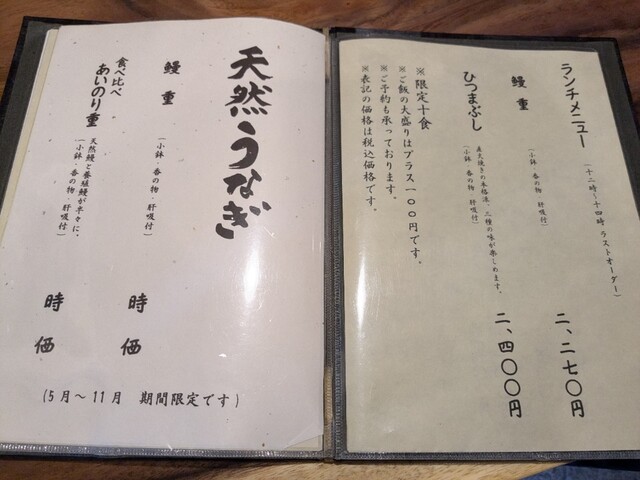 ランチメニュー
(十二時〜十四時 ラストオーダー)
鰻重
(小鉢・香の物 肝吸付)
二、二七〇円
ひつまぶし
(小鉢・香の物 肝吸付)
二、四〇〇円
※限定十食
※ご飯の大盛りはプラス一〇〇円です。
※ご予約も承っております。
※表記の価格は税込価格です。
天然うなぎ
鰻重
(小鉢・香の物・肝吸付)
時価
食べ比べ
あいのり重
天然鰻と養殖鰻が半々に。
(小鉢・香の物・肝吸付)
時価
(5月〜11月 期間限定です)